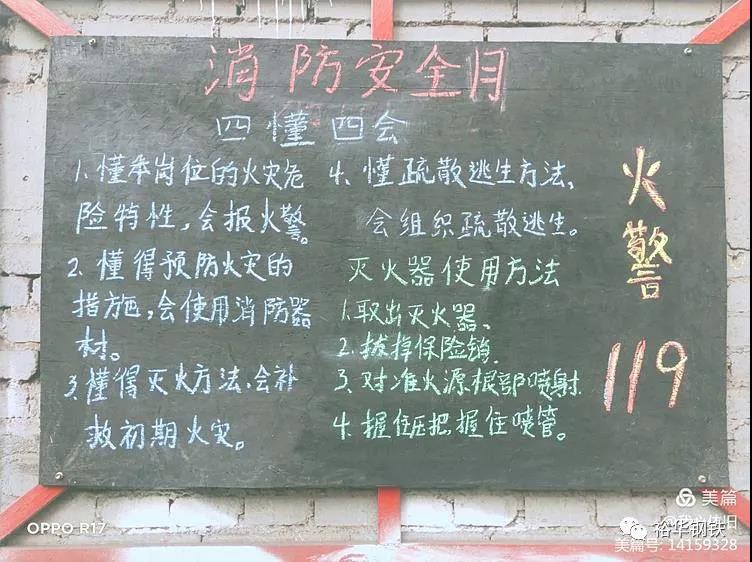 消防安全月
四懂四会
1.懂本岗位的火灾危
险特性,会报火警。
2.懂得预防火灾的
措施,会使用消防器
材。
3.懂得灭火方法.会补
救初期火灾。
4.懂疏散逃生方法、
会组织疏散逃生。
灭火器使用方法
1.取出灭火器、
2.拔掉保险销.
3.对准火源根部喷射.
4.握住压把,握住喷管。
火警
119
OPPO R17
美篇
裕华钢铁
美篇号: 14159328